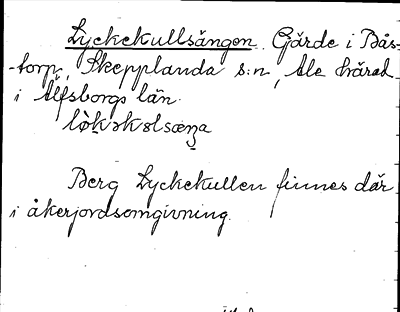 Lyckekullsängen. Gärde i Bås-
-torp, Skepplanda s:n, Ale härad
i Älfsborgs län.
Berg Lyckekullen finnes där
i åkerjordsomgivning.